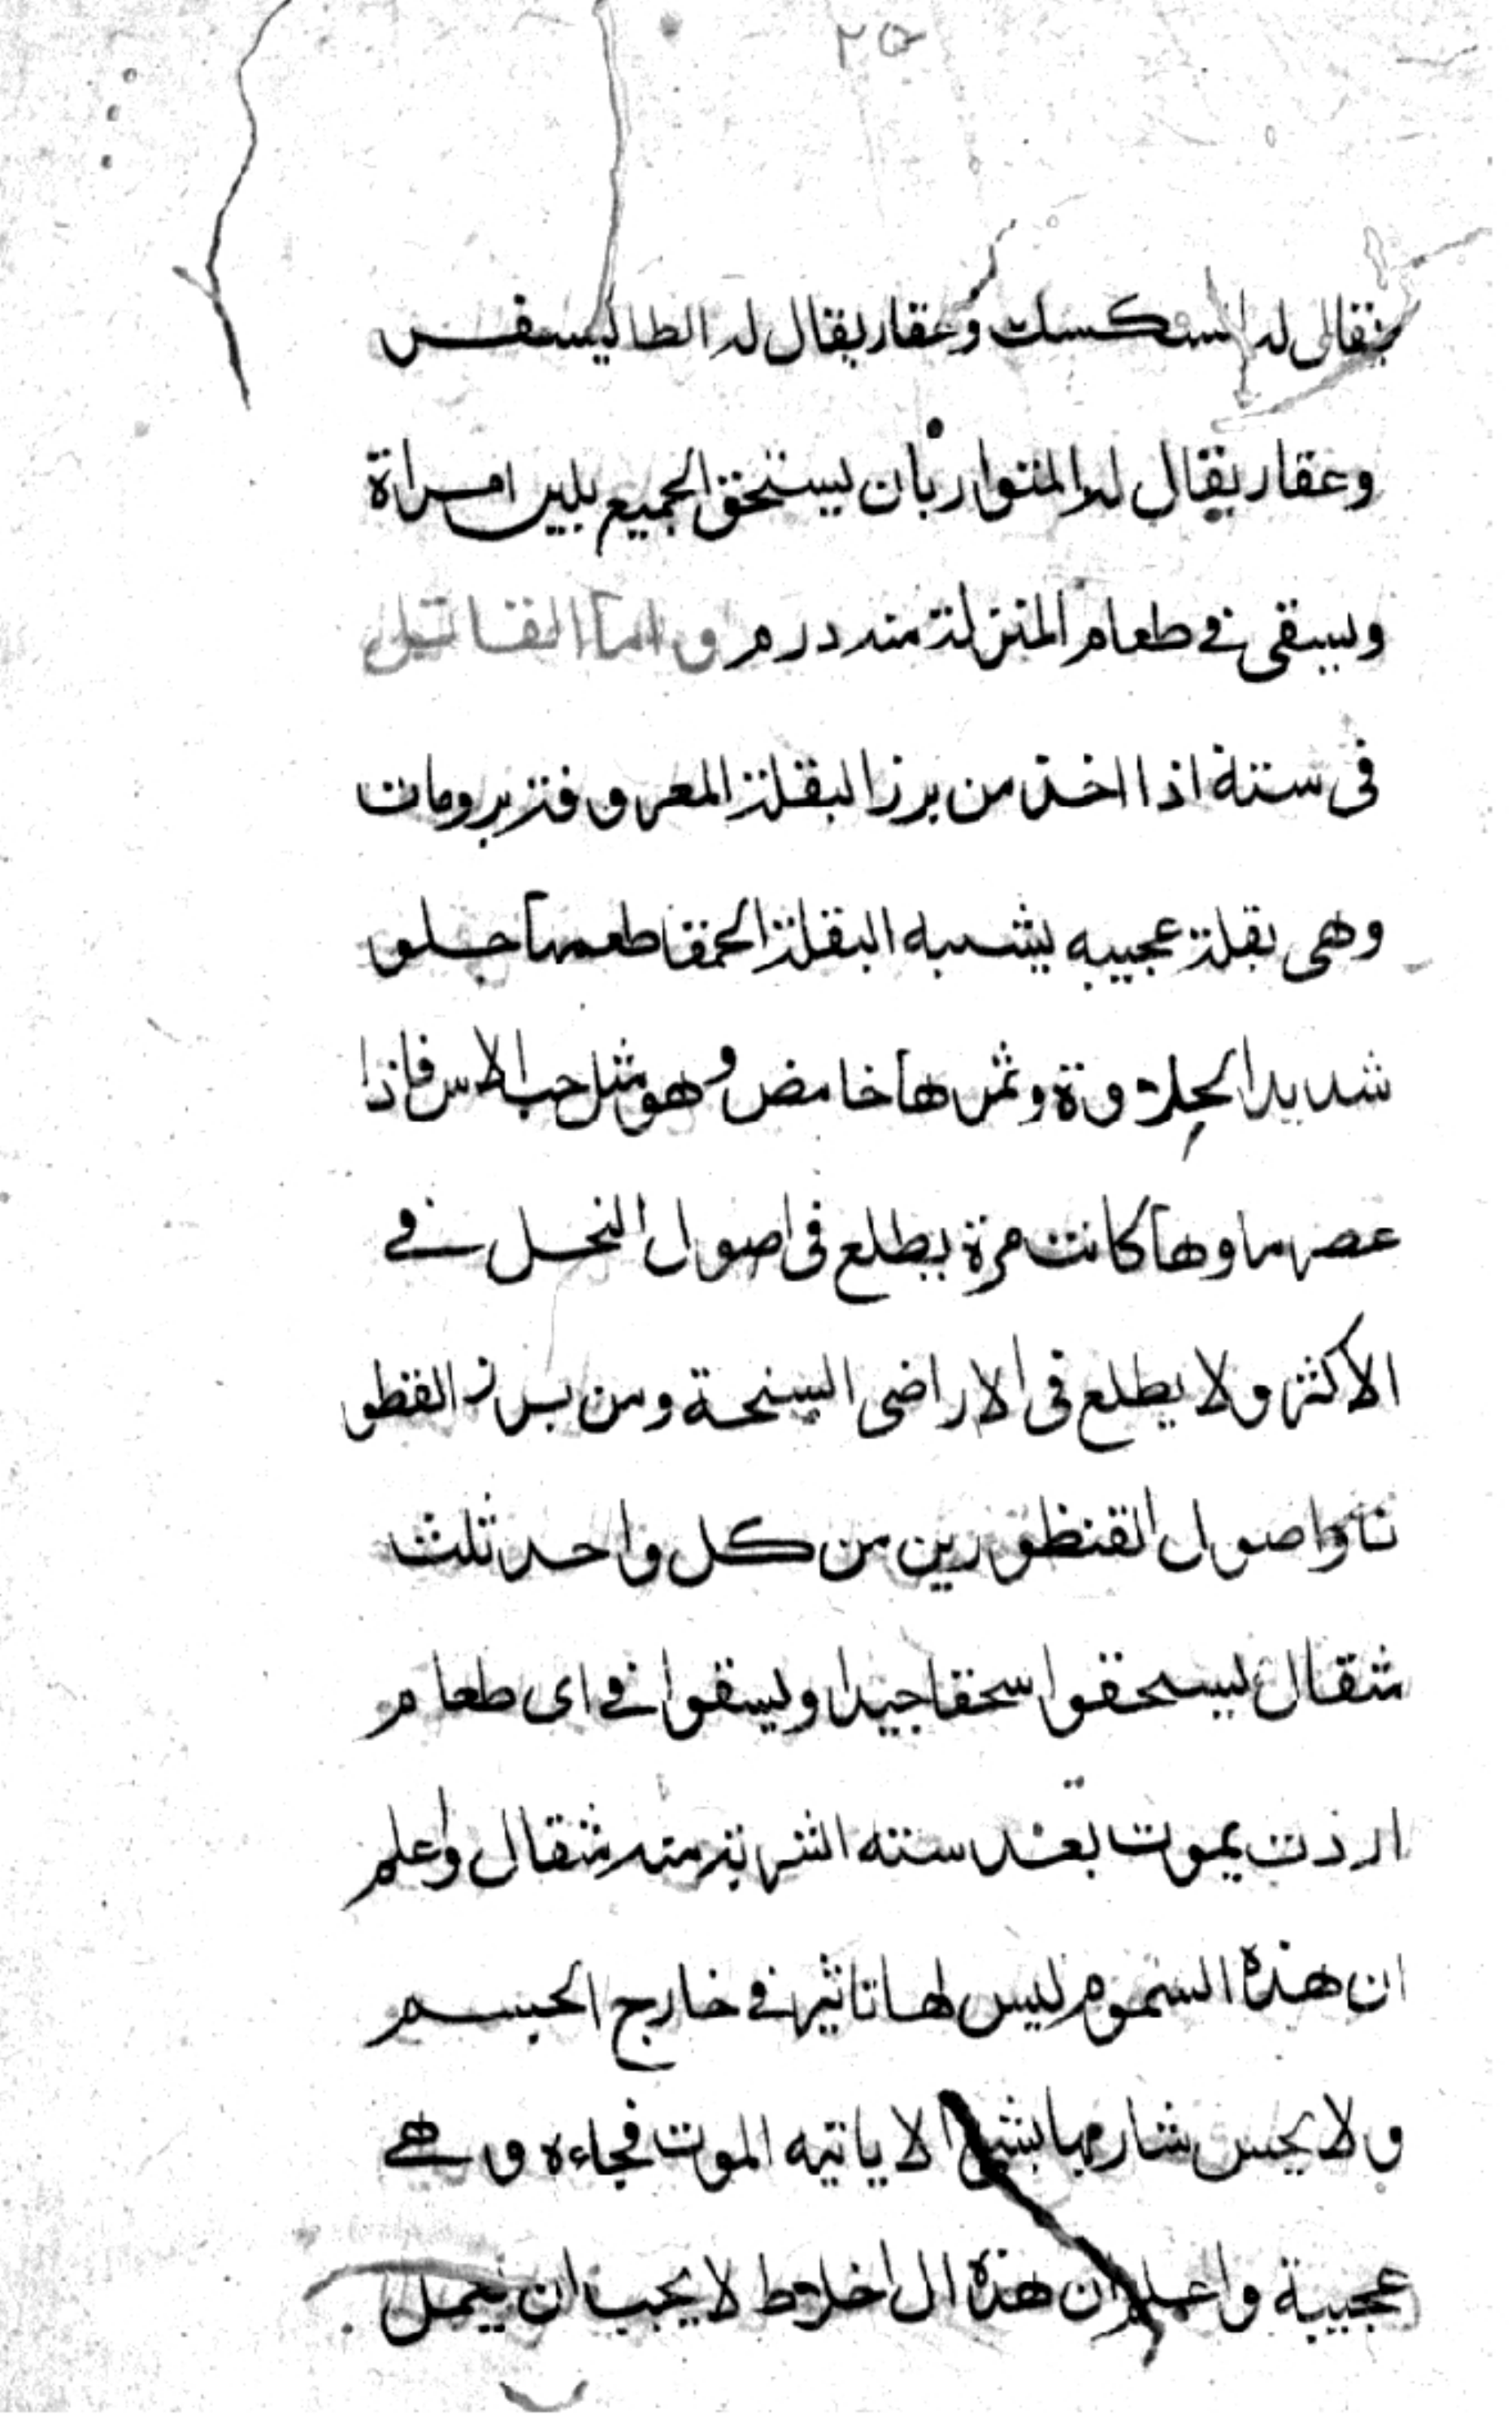 ٢٥
يقال له السكسك وعقار يقال له الطاليسفس
وعقار يقال له المتوار بان يستحق الجميع بلبن امراة
ويسقى في طعام المنزلة منه درم واما القاتل
فى ستة اذا اخذ من برز البقلة المعروفة بروमات
وهى بقلة عجيبه يشبه البقلة الحمقا طعمها حلو
شديد الحلاوة وثمرها خامض وهو مثل حب الاس فاذا
عصر ماوها كانت مرة يطلع فى اصول النخل في
الاكثر ولا يطلع فى الاراضى السنحة ومن برز القطو
نا واصول القنظورين من كل واحد ثلث
مثقال يسحقوا سحقا جيدا ويسقوا في اى طعام
اردت يموت بعد سنته الشربة منه مثقال واعلم
ان هذه السموم ليس لها تاثير في خارج الجسم
ولا يحس شاربها بشئ الا ياتيه الموت فجاءه وهي
عجيبة واعلم ان هذه ال اخلاط لا يجب ان يعمل